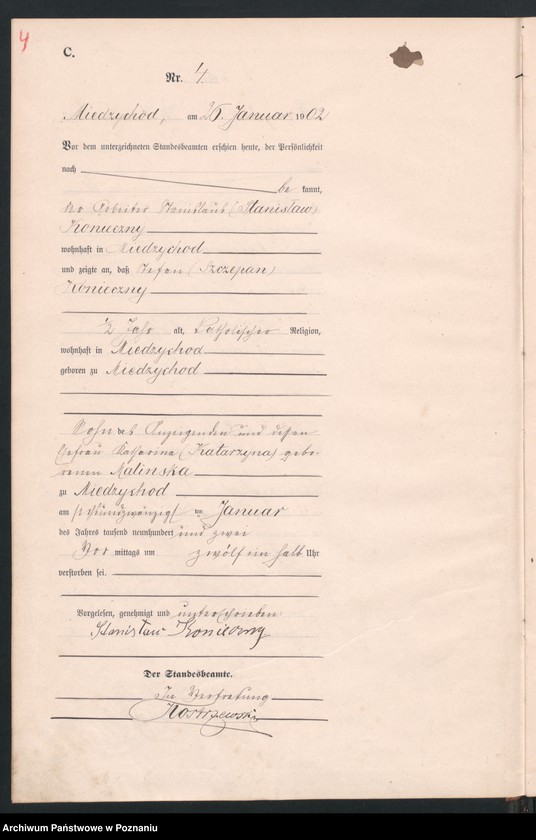 4
C.
Nr. 4
Miedzychod, am 26. Januar 1902
Vor dem unterzeichneten Standesbeamten erschien heute, der Persönlichkeit
nach be kannt,
der Arbeiter Stanislaus (Stanisław)
Konieczny
wohnhaft in Miedzychod
und zeigte an, daß Stefan (Szczepan)
Konieczny
1/2 Jahr alt, katholischer Religion,
wohnhaft in Miedzychod
geboren zu Miedzychod
Sohn des Anzeigenden und dessen
Ehefrau Katharina (Katarzyna) gebo-
renen Malinska
zu Miedzychod
am Januar
des Jahres tausend neunhundert und zwei
Vor mittags um zwölf ein halb Uhr
verstorben sei.
Vorgelesen, genehmigt und unterschrieben
Stanisław Konieczny
Der Standesbeamte.
In Vertretung
Kostrzewski
Archiwum Państwowe w Poznaniu